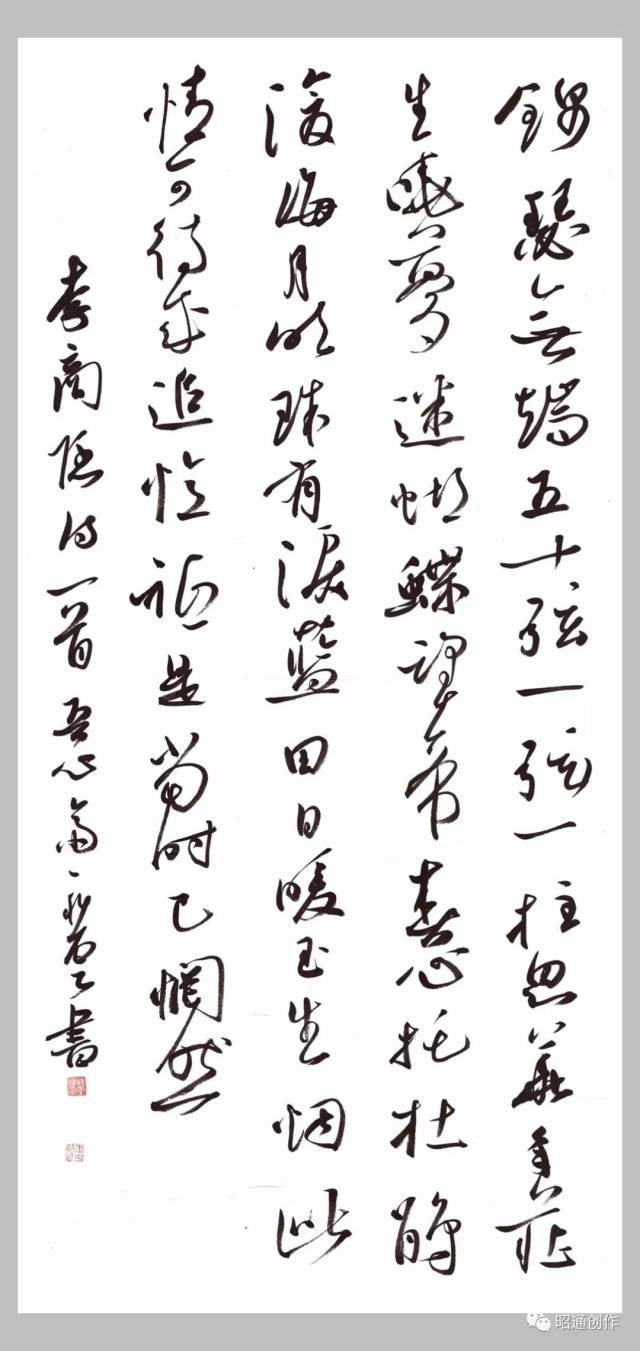 錦瑟無端五十弦一弦一柱思華年莊
生曉夢迷蝴蝶望帝春心托杜鵑
滄海月明珠有淚藍田日暖玉生烟此
情可待成追憶祗是當時已惘然
李商隱詩一首吾心齋書
昭通创作